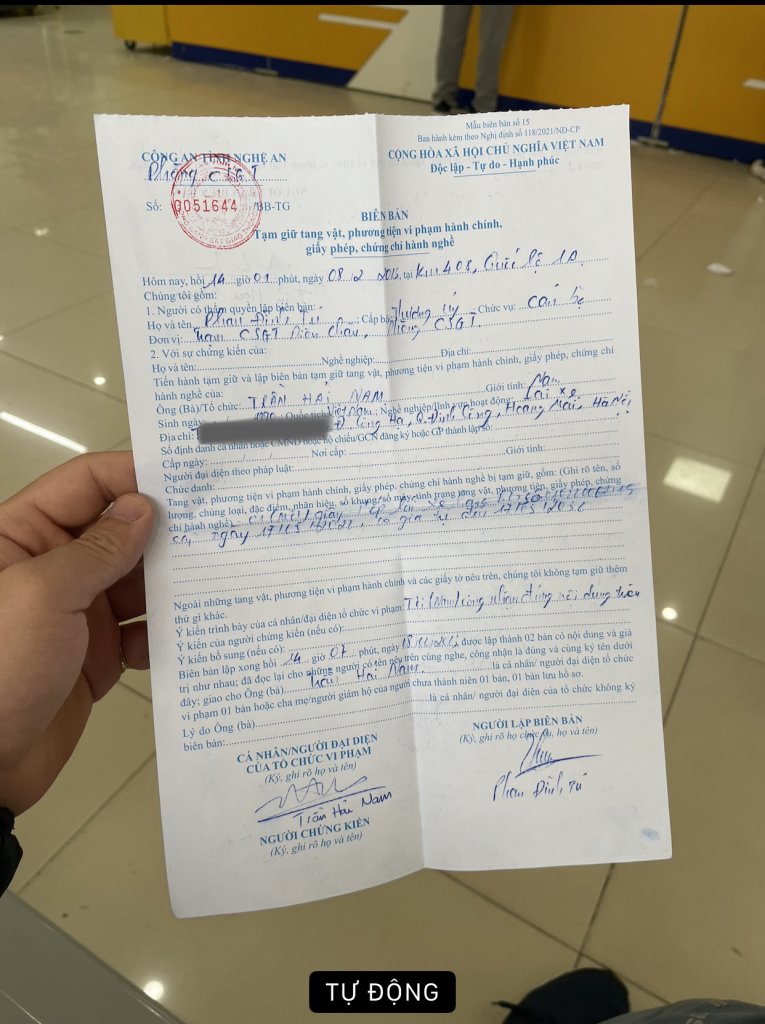 Mẫu biên bản số 15
Ban hành kèm theo Nghị định số 118/2021/NĐ-CP
CÔNG AN TỈNH NGHỆ AN
Phòng CSGT
CỘNG HÒA XÃ HỘI CHỦ NGHĨA VIỆT NAM
Độc lập - Tự do - Hạnh phúc
Số: 0051644 /BB-TG
BIÊN BẢN
Tạm giữ tang vật, phương tiện vi phạm hành chính,
giấy phép, chứng chỉ hành nghề
Hôm nay, hồi 14 giờ 01 phút, ngày 08 tại Km 408, Quốc lộ 1A
Chúng tôi gồm:
1. Người có thẩm quyền lập biên bản:
Họ và tên Phan Đình Tú; Cấp bậc: Thượng úy; Chức vụ: Cán bộ
Đơn vị: Trạm CSGT Diễn Châu, Phòng CSGT.
2. Với sự chứng kiến của:
Họ và tên: Nghề nghiệp: Địa chỉ:
Tiến hành tạm giữ và lập biên bản tạm giữ tang vật, phương tiện vi phạm hành chính, giấy phép, chứng chỉ
hành nghề của:
Ông (Bà)/Tổ chức: TRẦN HẢI NAM Giới tính: Nam
Sinh ngày: Quốc tịch: Việt Nam; Nghề nghiệp/lĩnh vực hoạt động: Lái xe
Địa chỉ: Định Công, Hoàng Mai, Hà Nội
Số định danh cá nhân hoặc CMND hoặc hộ chiếu/GCN đăng ký hoặc GP thành lập số:
Cấp ngày: / / Nơi cấp:
Người đại diện theo pháp luật: Giới tính:
Chức danh:
Tang vật, phương tiện vi phạm hành chính, giấy phép, chứng chỉ hành nghề bị tạm giữ, gồm: (Ghi rõ tên, số
lượng, chủng loại, đặc điểm, nhãn hiệu, số khung/số máy, tình trạng tang vật, phương tiện, giấy phép, chứng
chỉ hành nghề): 01 giấy phép lái xe
ngày 17/05/2022, có giá trị đến 17/05/2032
Ngoài những tang vật, phương tiện vi phạm hành chính và các giấy tờ nêu trên, chúng tôi không tạm giữ thêm
thứ gì khác.
Ý kiến trình bày của cá nhân/đại diện tổ chức vi phạm: Tôi công nhận đúng nội dung trên
Ý kiến của người chứng kiến (nếu có):
Ý kiến bổ sung (nếu có):
Biên bản lập xong hồi 14 giờ 07 phút, ngày được lập thành 02 bản có nội dung và giá
trị như nhau; đã đọc lại cho những người có tên nêu trên cùng nghe, công nhận là đúng và cùng ký tên dưới
đây; giao cho Ông (bà) Trần Hải Nam là cá nhân/ người đại diện tổ chức
vi phạm 01 bản hoặc cha mẹ/người giám hộ của người chưa thành niên 01 bản, 01 bản lưu hồ sơ.
Lý do Ông (bà) là cá nhân/ người đại diện của tổ chức không ký
biên bản:
CÁ NHÂN/NGƯỜI ĐẠI DIỆN
CỦA TỔ CHỨC VI PHẠM
(Ký, ghi rõ họ và tên)
Trần Hải Nam
NGƯỜI LẬP BIÊN BẢN
(Ký, ghi rõ họ và tên)
Phan Đình Tú
NGƯỜI CHỨNG KIẾN
(Ký, ghi rõ họ và tên)
TỰ ĐỘNG